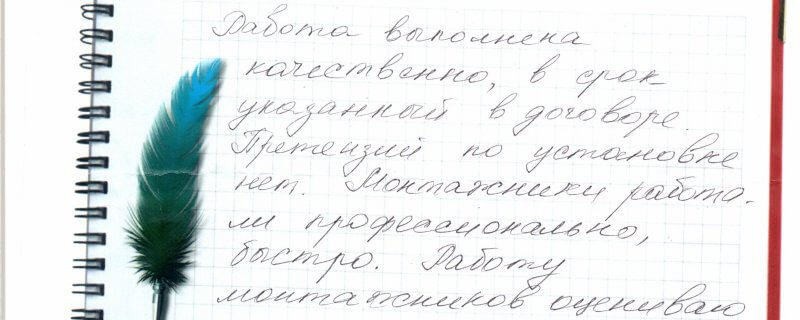 Работа выполнена
качественно, в срок
указанный в договоре.
Претензий по установке
нет. Монтажники работа-
ли профессионально,
быстро. Работу
монтажников оцениваю